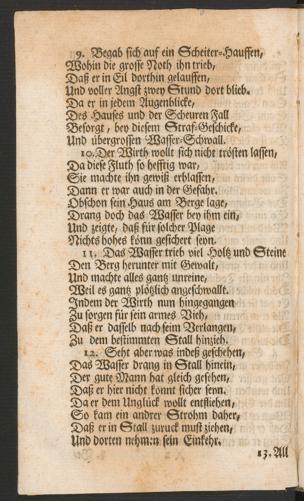 9. Begab sich auf ein Scheiter-Hauffen,
Wohin die grosse Noth ihn trieb,
Daß er in Eil dorthin gelauffen,
Und voller Angst zwey Stund dort blieb.
Da er in jedem Augenblicke,
Des Hauses und der Scheuren Fall
Besorgt, bey diesem Straf-Geschicke,
Und übergrossen Wasser-Schwall.
10. Der Wirth wollt sich nicht trösten lassen,
Da diese Fluth so hefftig war,
Sie machte ihn gewiß erblassen,
Dann er war auch in der Gefahr.
Obschon sein Haus am Berge lage,
Drang doch das Wasser bey ihm ein,
Und zeigte, daß für solcher Plage
Nichts hohes könn gesichert seyn.
11. Das Wasser trieb viel Holtz und Steine
Den Berg herunter mit Gewalt,
Und machte alles gantz unreine,
Weil es gantz plötzlich angeschwallt.
Indem der Wirth nun hingegangen
Zu sorgen für sein armes Vieh,
Daß er dasselb nach seim Verlangen,
Zu dem bestimmten Stall hinzieh.
12. Seht aber was indeß geschehen,
Das Wasser drang in Stall hinein,
Der gute Mann hat gleich gesehen,
Daß er hier nicht könnt sicher seyn.
Da er dem Unglück wollt entfliehen,
So kam ein andrer Strohm daher,
Daß er in Stall zuruck must ziehen,
Und dorten nehmen sein Einkehr.
13. All